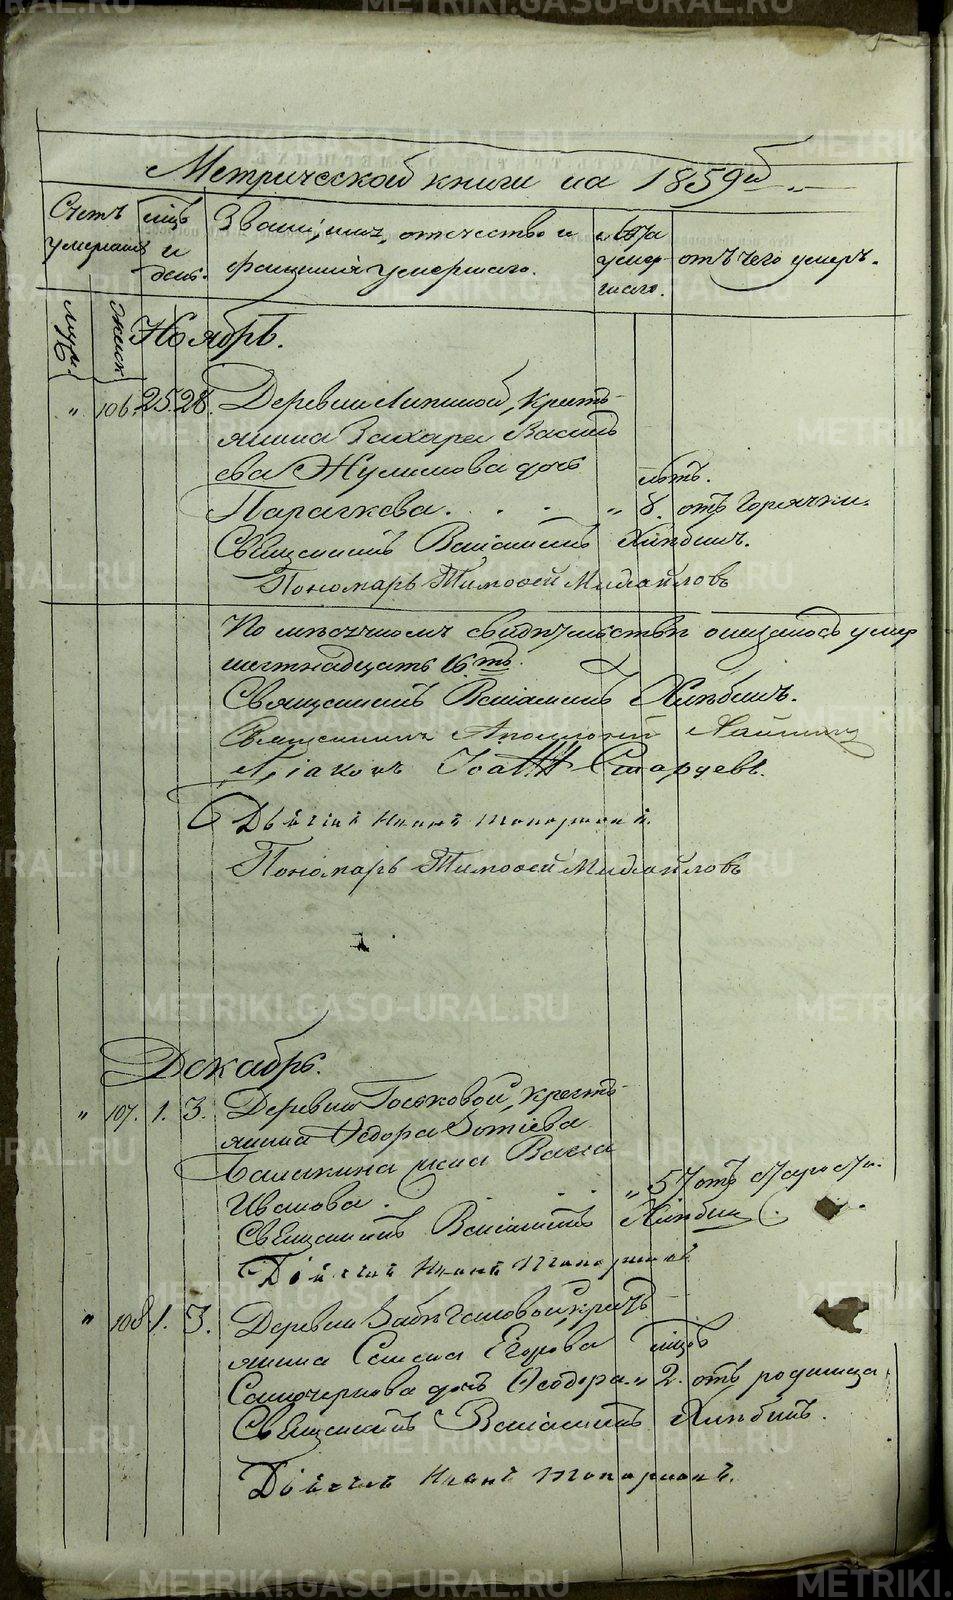 Метрической книги на 1859й
Счетъ умершихъ
мцъ и день.
Званіе, имя, отчество и фамилія умершаго.
лѣта умершаго.
отъ чего умеръ.
муж.
женск.
Ноябрь.
" 106. 25. 28. Деревни Липиной, кресть-
янина Захара Василь
ева Жулимова дочь лѣтъ.
Параскева. . . . " 8. отъ горячки.
Священникъ Веніаминъ Хлѣбинъ.
Пономарь Тимофей Михайловъ
По мѣсячному свидѣтельству оказалось умер
шестнадцать 16ть.
Священникъ Веніаминъ Хлѣбинъ.
Священникъ Аполлоній
Діаконъ Іоаннъ Старцевъ.
Дьячекъ Иванъ Топорковъ.
Пономарь Тимофей Михайловъ
Декабрь.
" 107. 1. 3. Деревни Госьковой, кресть-
янина Ѳедора Зотіева
Балакина жена Васса
Иванова. . . . " 57 отъ старости.
Священникъ Веніаминъ Хлѣбин
Дьячекъ Иванъ Топорковъ
" 108. 1. 3. Деревни кресть-
янина Семена Егорова мцъ
Самочернова дочь Ѳеодора. " 2. отъ родимца.
Священникъ Веніаминъ Хлѣбинъ.
Дьячекъ Иванъ Топорковъ.
METRIKI.GASO-URAL.RU